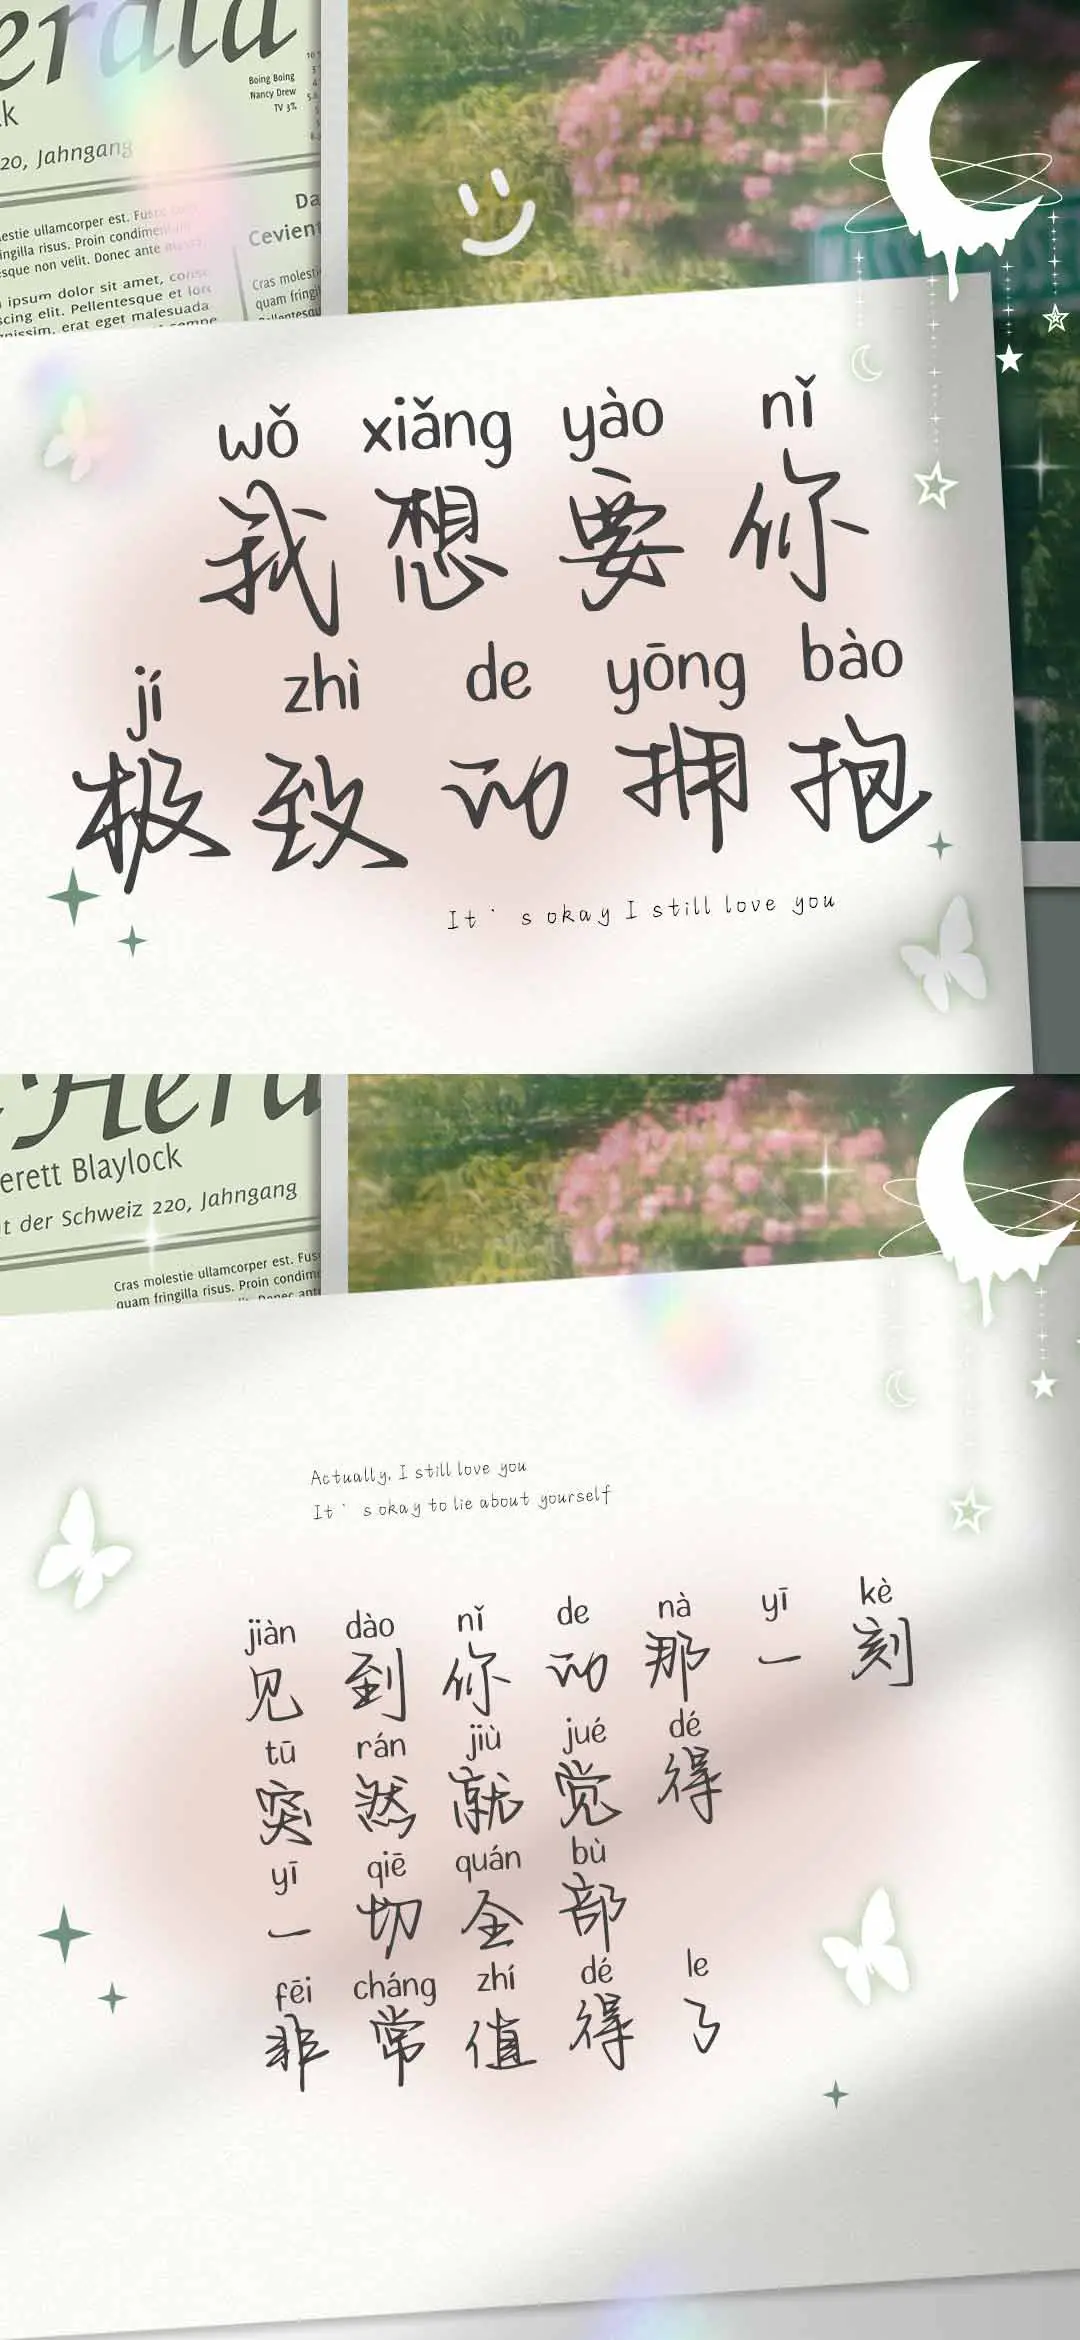 erald
ck
220, Jahngang
Boing Boing
Nancy Drew
TV 3%
estie ullamcorper est. Fusc
ingilla risus. Proin condimen
esque non velit. Donec ante
ipsum dolor sit amet, conse
scing elit. Pellentesque et lore
gnissim, erat eget malesuada
Da
Cevient
Cras molesti
quam fringi
Pellentesqu
wǒ xiǎng yào nǐ
我想要你
jí zhì de yōng bào
极致的拥抱
It's okay I still love you
Heral
erett Blaylock
t der Schweiz 220, Jahngang
Cras molestie ullamcorper est. Fus
quam fringilla risus. Proin condime
Actually, I still love you
It's okay to lie about yourself
jiàn dào nǐ de nà yī kè
见到你的那一刻
tū rán jiù jué dé
突然就觉得
yī qiē quán bù
一切全部
fēi cháng zhí dé le
非常值得了